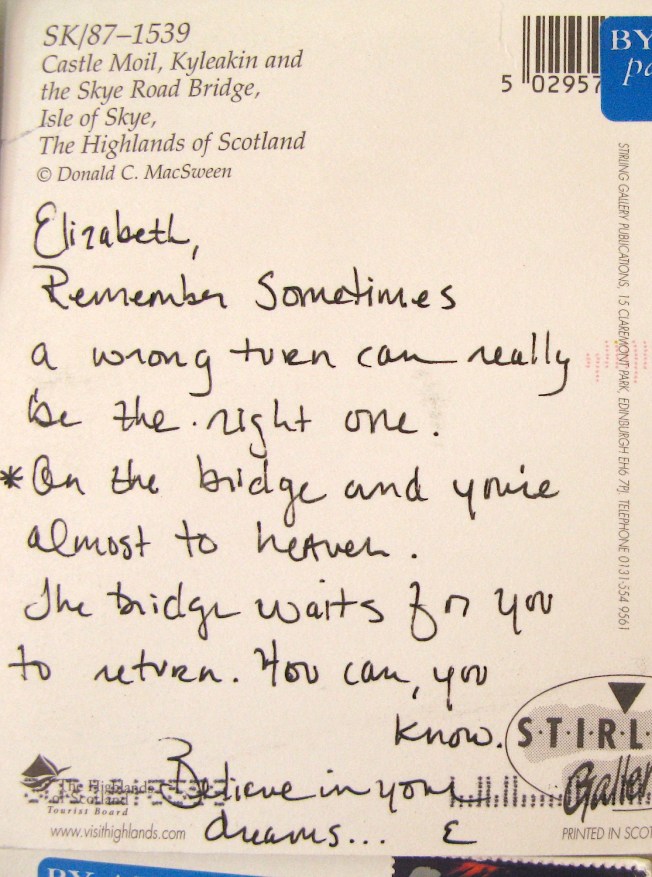 SK/87–1539
Castle Moil, Kyleakin and
the Skye Road Bridge,
Isle of Skye,
The Highlands of Scotland
© Donald C. MacSween
5 02957
BY
pa
STIRLING GALLERY PUBLICATIONS, 15 CLAREMONT PARK, EDINBURGH EH6 7PJ, TELEPHONE 0131-554 9561
Elizabeth,
Remember Sometimes
a wrong turn can really
be the right one.
*On the bridge and you're
almost to heaven.
The bridge waits for you
to return. You can, you
know.
Believe in your
dreams... E
S·T·I·R·L·
Galler
PRINTED IN SCOT
The Highlands
of Scotland
Tourist Board
www.visithighlands.com